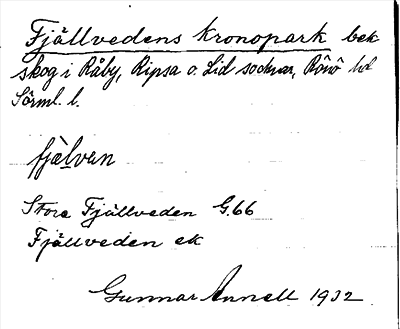 Fjällvedens kronopark bek
skog i Råby, Ripsa o. Lid socknar, Rönö hd
Sörml. l.
fjælvan
Stora Fjällveden G.66
Fjällveden ek
Gunnar Annell 1932